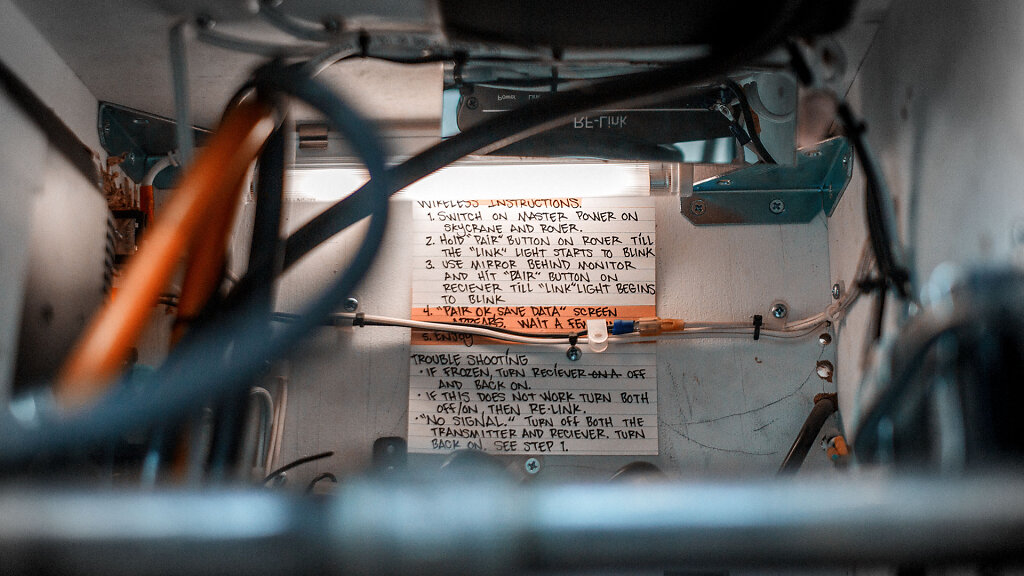 Power Link
RF-Link
WIRELESS INSTRUCTIONS.
1. SWITCH ON MASTER POWER ON
SKYCRANE AND ROVER.
2. HOLD "PAIR" BUTTON ON ROVER TILL
THE "LINK" LIGHT STARTS TO BLINK
3. USE MIRROR BEHIND MONITOR
AND HIT "PAIR" BUTTON ON
RECIEVER TILL "LINK" LIGHT BEGINS
TO BLINK
4. "PAIR OK, SAVE DATA" SCREEN
APPEARS. WAIT A FEW
5. ENJOY
TROUBLE SHOOTING
· IF FROZEN, TURN RECIEVER ON A OFF
AND BACK ON.
· IF THIS DOES NOT WORK TURN BOTH
OFF/ON, THEN RE-LINK.
· "NO SIGNAL." TURN OFF BOTH THE
TRANSMITTER AND RECIEVER. TURN
BACK ON. SEE STEP 1.